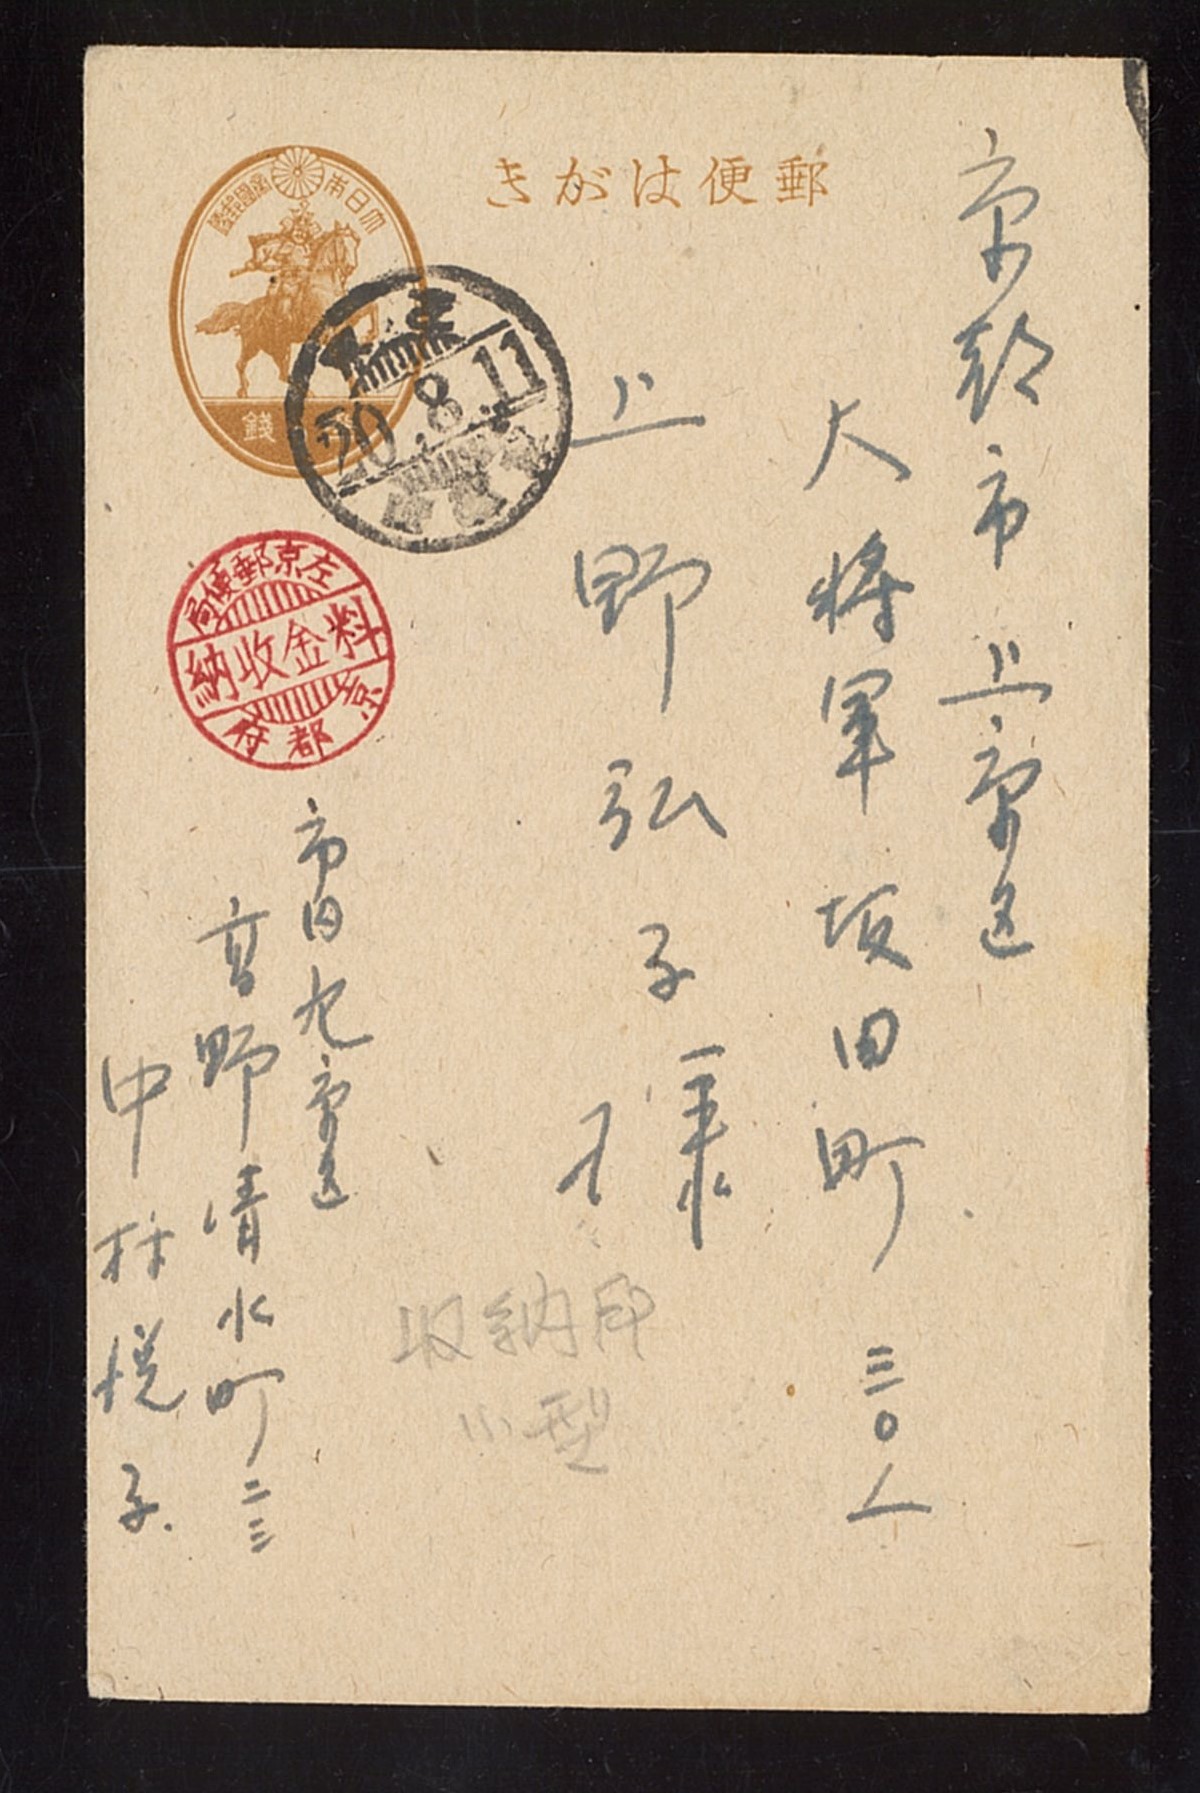 郵便はがき
京都市上京区
大将軍坂田町三〇八
上野弘子様
大日本帝國郵便
錢
20.8.11
左京郵便局
料金收納
京都府
市内左京区
高野清水町二三
中林悦子.
収納印
小型